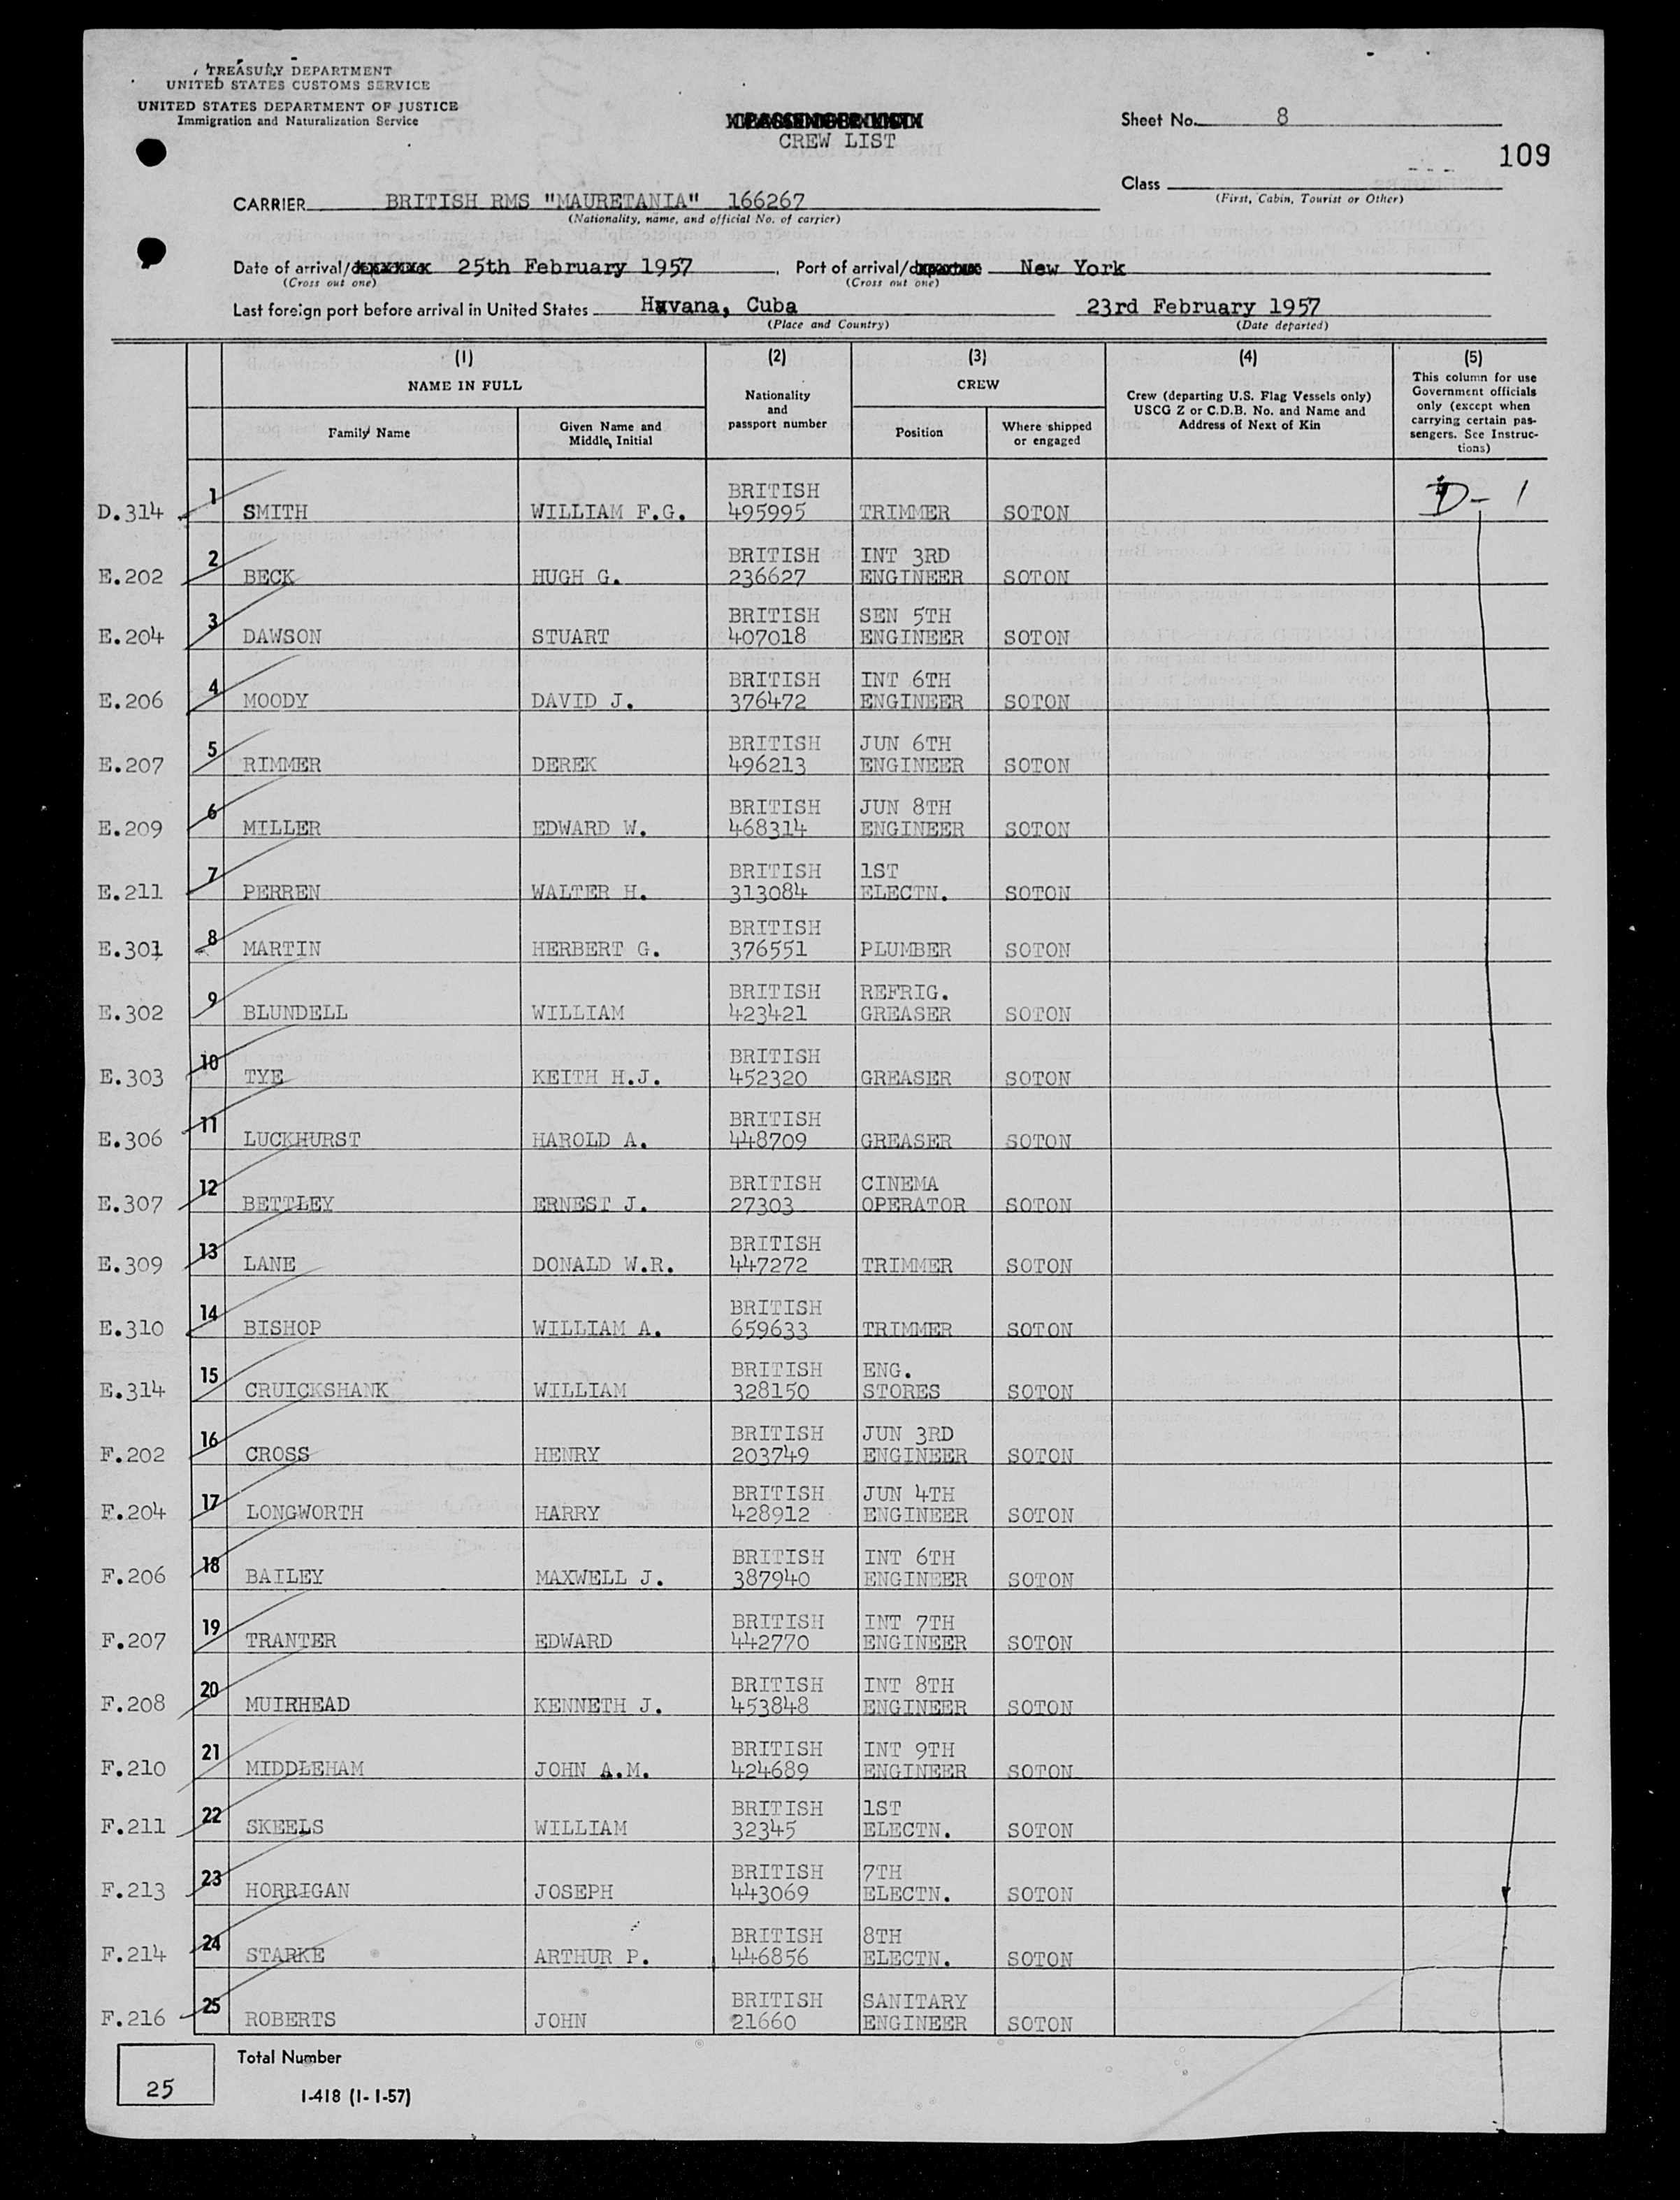 TREASURY DEPARTMENT
UNITED STATES CUSTOMS SERVICE
UNITED STATES DEPARTMENT OF JUSTICE
Immigration and Naturalization Service
CREW LIST
Sheet No. 8
109
Class
(First, Cabin, Tourist or Other)
CARRIER BRITISH RMS "MAURETANIA" 166267
(Nationality, name, and official No. of carrier)
Date of arrival/ 25th February 1957, Port of arrival/ New York
(Cross out one) (Cross out one)
Last foreign port before arrival in United States Havana, Cuba 23rd February 1957
(Place and Country) (Date departed)
(1) (2) (3) (4) (5)
NAME IN FULL
Family Name
Given Name and
Middle, Initial
Nationality
and
passport number
CREW
Position
Where shipped
or engaged
Crew (departing U.S. Flag Vessels only)
USCG Z or C.D.B. No. and Name and
Address of Next of Kin
This column for use
Government officials
only (except when
carrying certain pas-
sengers. See Instruc-
tions)
1 BRITISH D- 1
D.314 SMITH WILLIAM F.G. 495995 TRIMMER SOTON
2 BRITISH INT 3RD
E.202 BECK HUGH G. 236627 ENGINEER SOTON
3 BRITISH SEN 5TH
E.204 DAWSON STUART 407018 ENGINEER SOTON
4 BRITISH INT 6TH
E.206 MOODY DAVID J. 376472 ENGINEER SOTON
5 BRITISH JUN 6TH
E.207 RIMMER DEREK 496213 ENGINEER SOTON
6 BRITISH JUN 8TH
E.209 MILLER EDWARD W. 468314 ENGINEER SOTON
7 BRITISH 1ST
E.211 PERREN WALTER H. 313084 ELECTN. SOTON
8 BRITISH
E.301 MARTIN HERBERT G. 376551 PLUMBER SOTON
9 BRITISH REFRIG.
E.302 BLUNDELL WILLIAM 423421 GREASER SOTON
10 BRITISH
E.303 TYE KEITH H.J. 452320 GREASER SOTON
11 BRITISH
E.306 LUCKHURST HAROLD A. 448709 GREASER SOTON
12 BRITISH CINEMA
E.307 BETTLEY ERNEST J. 27303 OPERATOR SOTON
13 BRITISH
E.309 LANE DONALD W.R. 447272 TRIMMER SOTON
14 BRITISH
E.310 BISHOP WILLIAM A. 659633 TRIMMER SOTON
15 BRITISH ENG.
E.314 CRUICKSHANK WILLIAM 328150 STORES SOTON
16 BRITISH JUN 3RD
F.202 CROSS HENRY 203749 ENGINEER SOTON
17 BRITISH JUN 4TH
F.204 LONGWORTH HARRY 428912 ENGINEER SOTON
18 BRITISH INT 6TH
F.206 BAILEY MAXWELL J. 387940 ENGINEER SOTON
19 BRITISH INT 7TH
F.207 TRANTER EDWARD 442770 ENGINEER SOTON
20 BRITISH INT 8TH
F.208 MUIRHEAD KENNETH J. 453848 ENGINEER SOTON
21 BRITISH INT 9TH
F.210 MIDDLEHAM JOHN A.M. 424689 ENGINEER SOTON
22 BRITISH 1ST
F.211 SKEELS WILLIAM 32345 ELECTN. SOTON
23 BRITISH 7TH
F.213 HORRIGAN JOSEPH 443069 ELECTN. SOTON
24 BRITISH 8TH
F.214 STARKE ARTHUR P. 446856 ELECTN. SOTON
25 BRITISH SANITARY
F.216 ROBERTS JOHN 21660 ENGINEER SOTON
Total Number
25
I-418 (1-1-57)